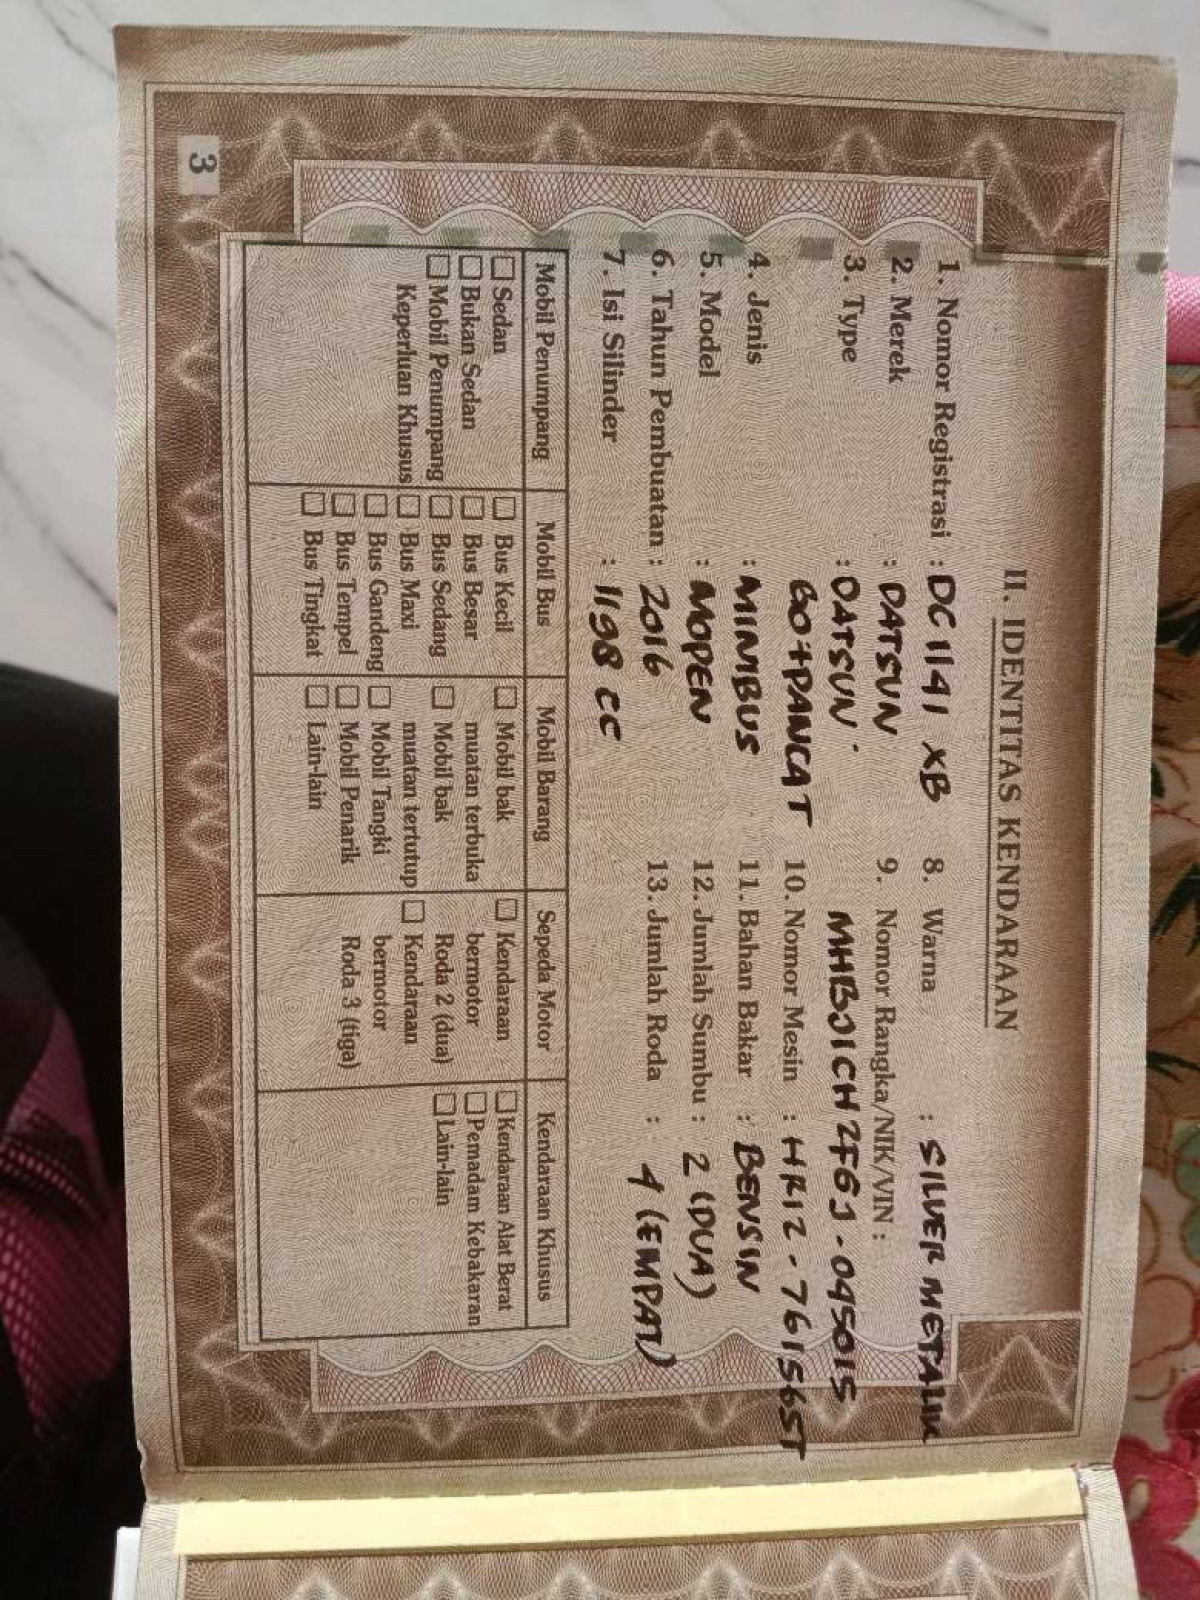 II. IDENTITAS KENDARAAN
1. Nomor Registrasi : DC 1141 XB
2. Merek : DATSUN
3. Type : DATSUN
GO+PANCAT
4. Jenis : MINIBUS
5. Model : MOPEN
6. Tahun Pembuatan : 2016
7. Isi Silinder : 1198 CC
8. Warna : SILVER METALIK
9. Nomor Rangka/NIK/VIN :
MHBJ1CH2FGJ-045015
10. Nomor Mesin : HR12-761565T
11. Bahan Bakar : BENSIN
12. Jumlah Sumbu : 2 (DUA)
13. Jumlah Roda : 4 (EMPAT)
Mobil Penumpang
Sedan
Bukan Sedan
Mobil Penumpang
Keperluan Khusus
Mobil Bus
Bus Kecil
Bus Besar
Bus Sedang
Bus Maxi
Bus Gandeng
Bus Tempel
Bus Tingkat
Mobil Barang
Mobil bak
muatan terbuka
Mobil bak
muatan tertutup
Mobil Tangki
Mobil Penarik
Lain-lain
Sepeda Motor
Kendaraan
bermotor
Roda 2 (dua)
Kendaraan
bermotor
Roda 3 (tiga)
Kendaraan Khusus
Kendaraan Alat Berat
Pemadam Kebakaran
Lain-lain
3